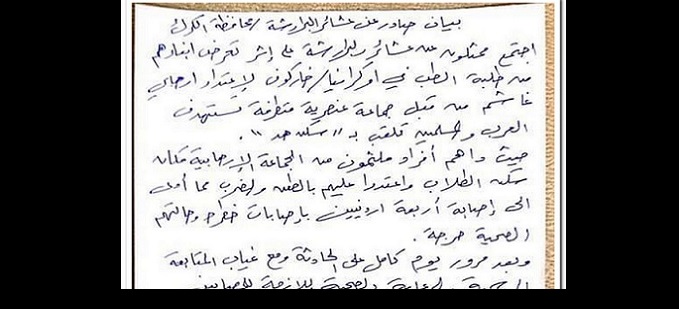 بيان صادر عن عشائر البرارشة / محافظة الكرك
اجتمع ممثلون عن عشائر البرارشة على إثر تعرض ابنائهم
من طلبة الطب في اوكرانيا / خاركوف لإعتداء ارهابي
غاشم من قبل جماعة عنصرية متطرفة تستهدف
العرب والمسلمين تلقب بـ "سكن هد".
حيث داهم أفراد ملثمون من الجماعة الإرهابية مكان
سكن الطلاب واعتدوا عليهم بالطعن والضرب مما أدى
الى إصابة أربعة اردنيين بإصابات خطرة وحالتهم
الصحية حرجة.
وبعد مرور يوم كامل على الحادثة ومع غياب المتابعة